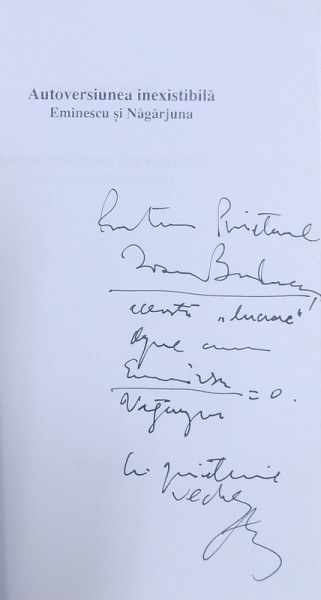 Autoversiunea inexistibilă
Eminescu și Nāgārjuna
Pentru Prietenul
Ioan
această „lucrare”
după cum
Eminescu
= 0.
Nāgārjuna
cu prietenie
veche